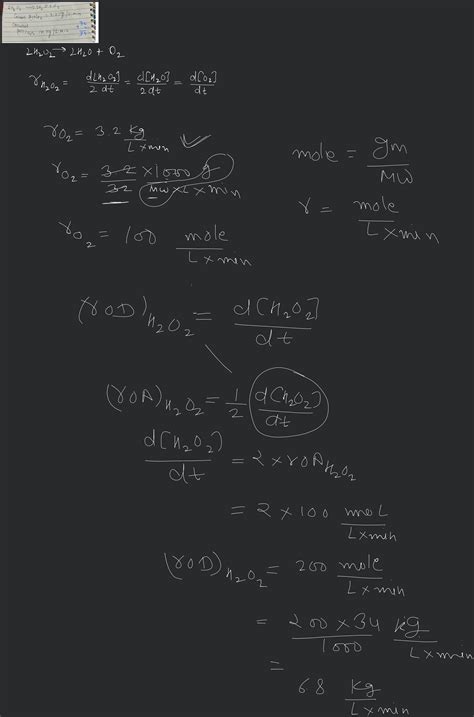 2H₂O₂ → 2H₂O + O₂
r_H₂O₂ = d[H₂O₂]/2 dt = d[H₂O]/2 dt = d[O₂]/dt
rO₂ = 3.2 kg/L×min ✓
mole = gm/MW
rO₂ = 3.2/32 ×1000 g/MW×L×min
r = mole/L×min
rO₂ = 100 mole/L×min
(rOD)H₂O₂ = d[H₂O₂]/dt
(rOA)H₂O₂ = 1/2 d[H₂O₂]/dt
d[H₂O₂]/dt = 2×rOA H₂O₂
= 2×100 mol/L×min
(rOD)H₂O₂ = 200 mole/L×min
= 200×34/1000 kg/L×min
= 68 kg/L×min